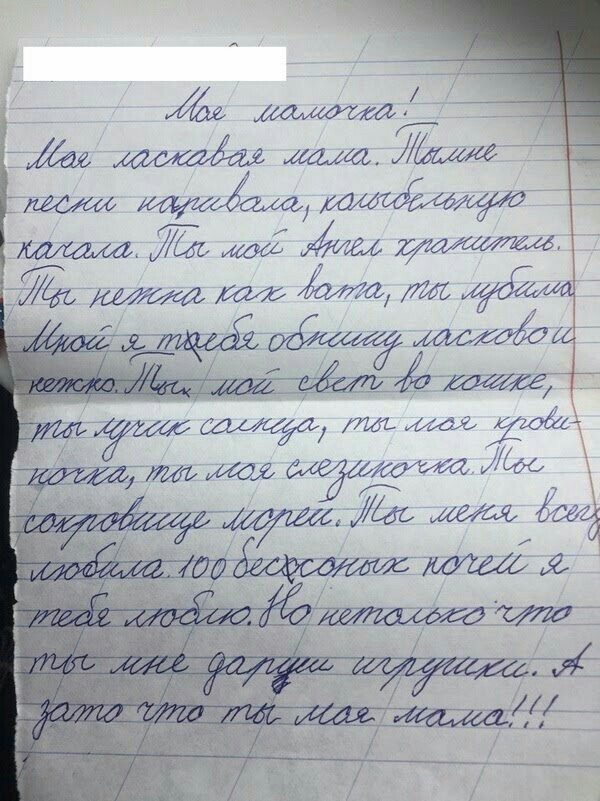 Моя мамочка!
Моя ласкавая мама. Ты мне
песни напивала, колыбельную
качала. Ты мой Ангел хранитель.
Ты нежна как вата, ты лубима
Мной я тебя обниму ласково и
нежно. Ты мой свет во кошке,
ты лучик солнца, ты моя крови-
ночка, ты моя слезиночка. Ты
сокровище морей. Ты меня всегд
любила. 100 бессоных ночей я
тебя люблю. Но нетолько что
ты мне дариш игрушки. А
зато что ты моя мама!!!